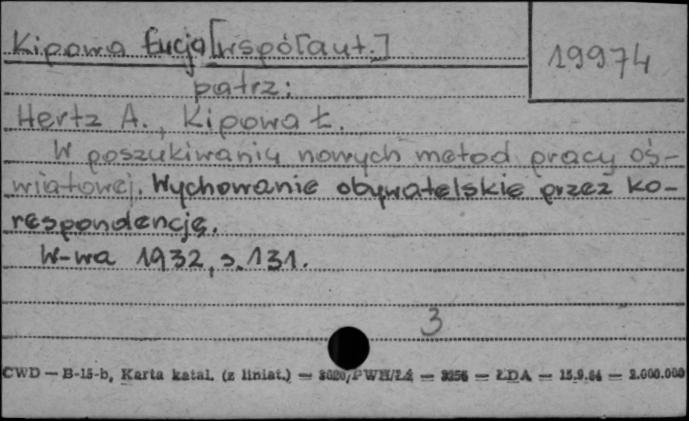 Kipowa Łucja [współaut.]
19974
patrz:
Hertz A., Kipowa Ł.
W poszukiwaniu nowych metod pracy oś-
wiatowej. Wychowanie obywatelskie przez ko-
respondencję.
W-wa 1932, s. 131.
3
CWD — B-15-b, Karta katal. (z liniat.) — PWH/Łź — — ŁDA — 15.9.64 — 2.000.000